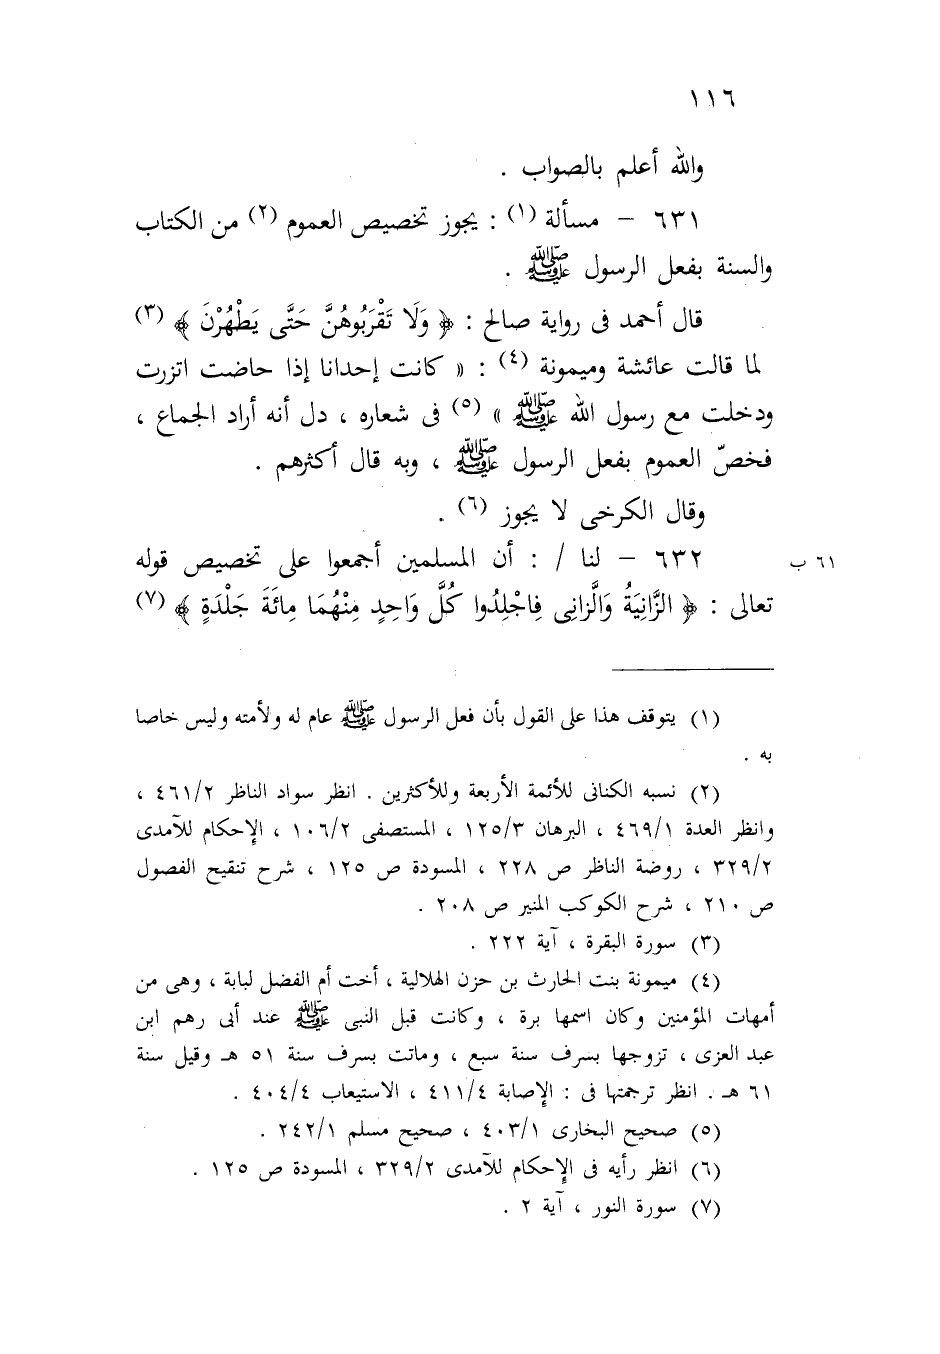 ١١٦
والله أعلم بالصواب .
٦٣١ – مسألة (١) : يجوز تخصيص العموم (٢) من الكتاب
والسنة بفعل الرسول ﷺ .
قال أحمد فى رواية صالح : ﴿ وَلَا تَقْرَبُوهُنَّ حَتَّى يَطْهُرْنَ ﴾ (٣)
لما قالت عائشة وميمونة (٤) : « كانت إحدانا إذا حاضت اتزرت
ودخلت مع رسول الله ﷺ » (٥) فى شعاره ، دل أنه أراد الجماع ،
فخصّ العموم بفعل الرسول ﷺ ، وبه قال أكثرهم .
وقال الكرخى لا يجوز (٦) .
٦٣٢ – لنا / : أن المسلمين أجمعوا على تخصيص قوله ٦١ ب
تعالى : ﴿ الزَّانِيَةُ وَالَّزانِى فِاجْلِدُوا كُلَّ وَاحِدٍ مِنْهُمَا مِائَةَ جَلْدَةٍ ﴾ (٧)
(١) يتوقف هذا على القول بأن فعل الرسول ﷺ عام له ولأمته وليس خاصا
به .
(٢) نسبه الكنانى للأئمة الأربعة وللأكثرين . انظر سواد الناظر ٤٦١/٢ ،
وانظر العدة ٤٦٩/١ ، البرهان ١٢٥/٣ ، المستصفى ١٠٦/٢ ، الإحكام للآمدى
٣٢٩/٢ ، روضة الناظر ص ٢٢٨ ، المسودة ص ١٢٥ ، شرح تنقيح الفصول
ص ٢١٠ ، شرح الكوكب المنير ص ٢٠٨ .
(٣) سورة البقرة ، آية ٢٢٢ .
(٤) ميمونة بنت الحارث بن حزن الهلالية ، أخت أم الفضل لبابة ، وهى من
أمهات المؤمنين وكان اسمها برة ، وكانت قبل النبى ﷺ عند أبى رهم ابن
عبد العزى ، تزوجها بسرف سنة سبع ، وماتت بسرف سنة ٥١ هـ وقيل سنة
٦١ هـ . انظر ترجمتها فى : الإصابة ٤١١/٤ ، الاستيعاب ٤٠٤/٤ .
(٥) صحيح البخارى ٤٠٣/١ ، صحيح مسلم ٢٤٢/١ .
(٦) انظر رأيه فى الإحكام للآمدى ٣٢٩/٢ ، المسودة ص ١٢٥ .
(٧) سورة النور ، آية ٢ .